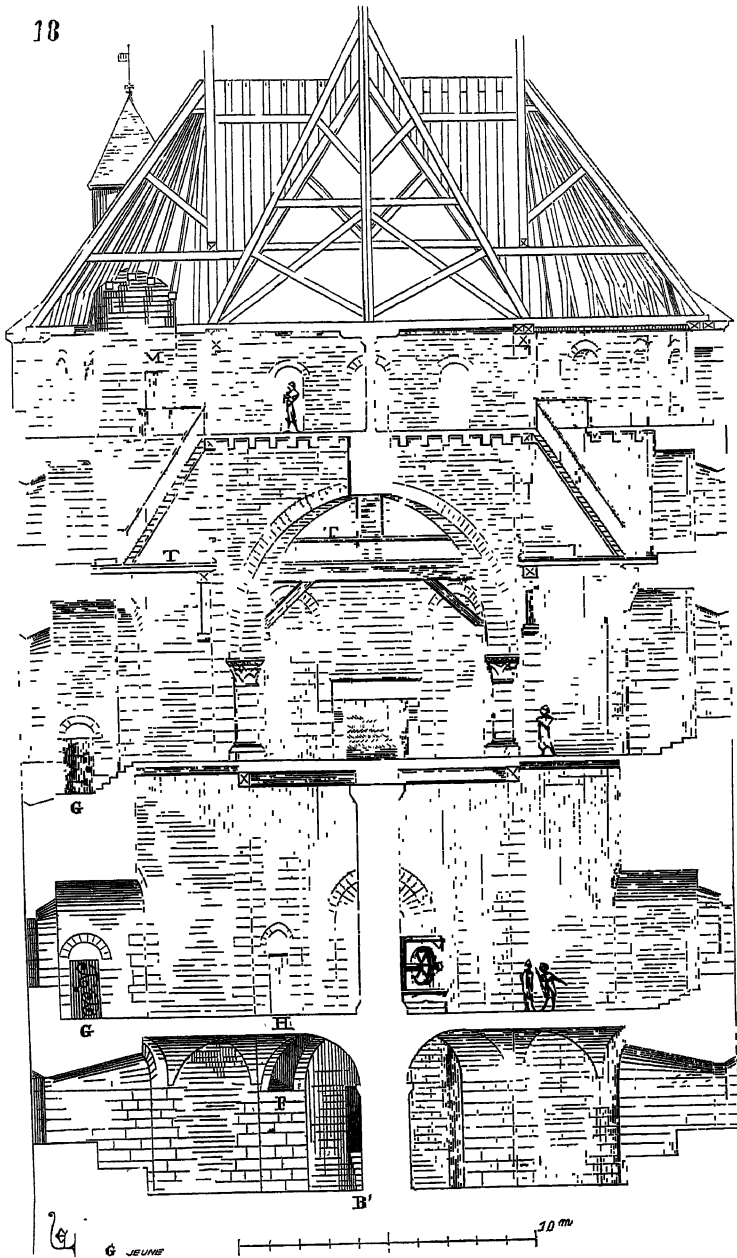 18
M
T
T
G
G
H
F
B'
G JEUNE
10 m